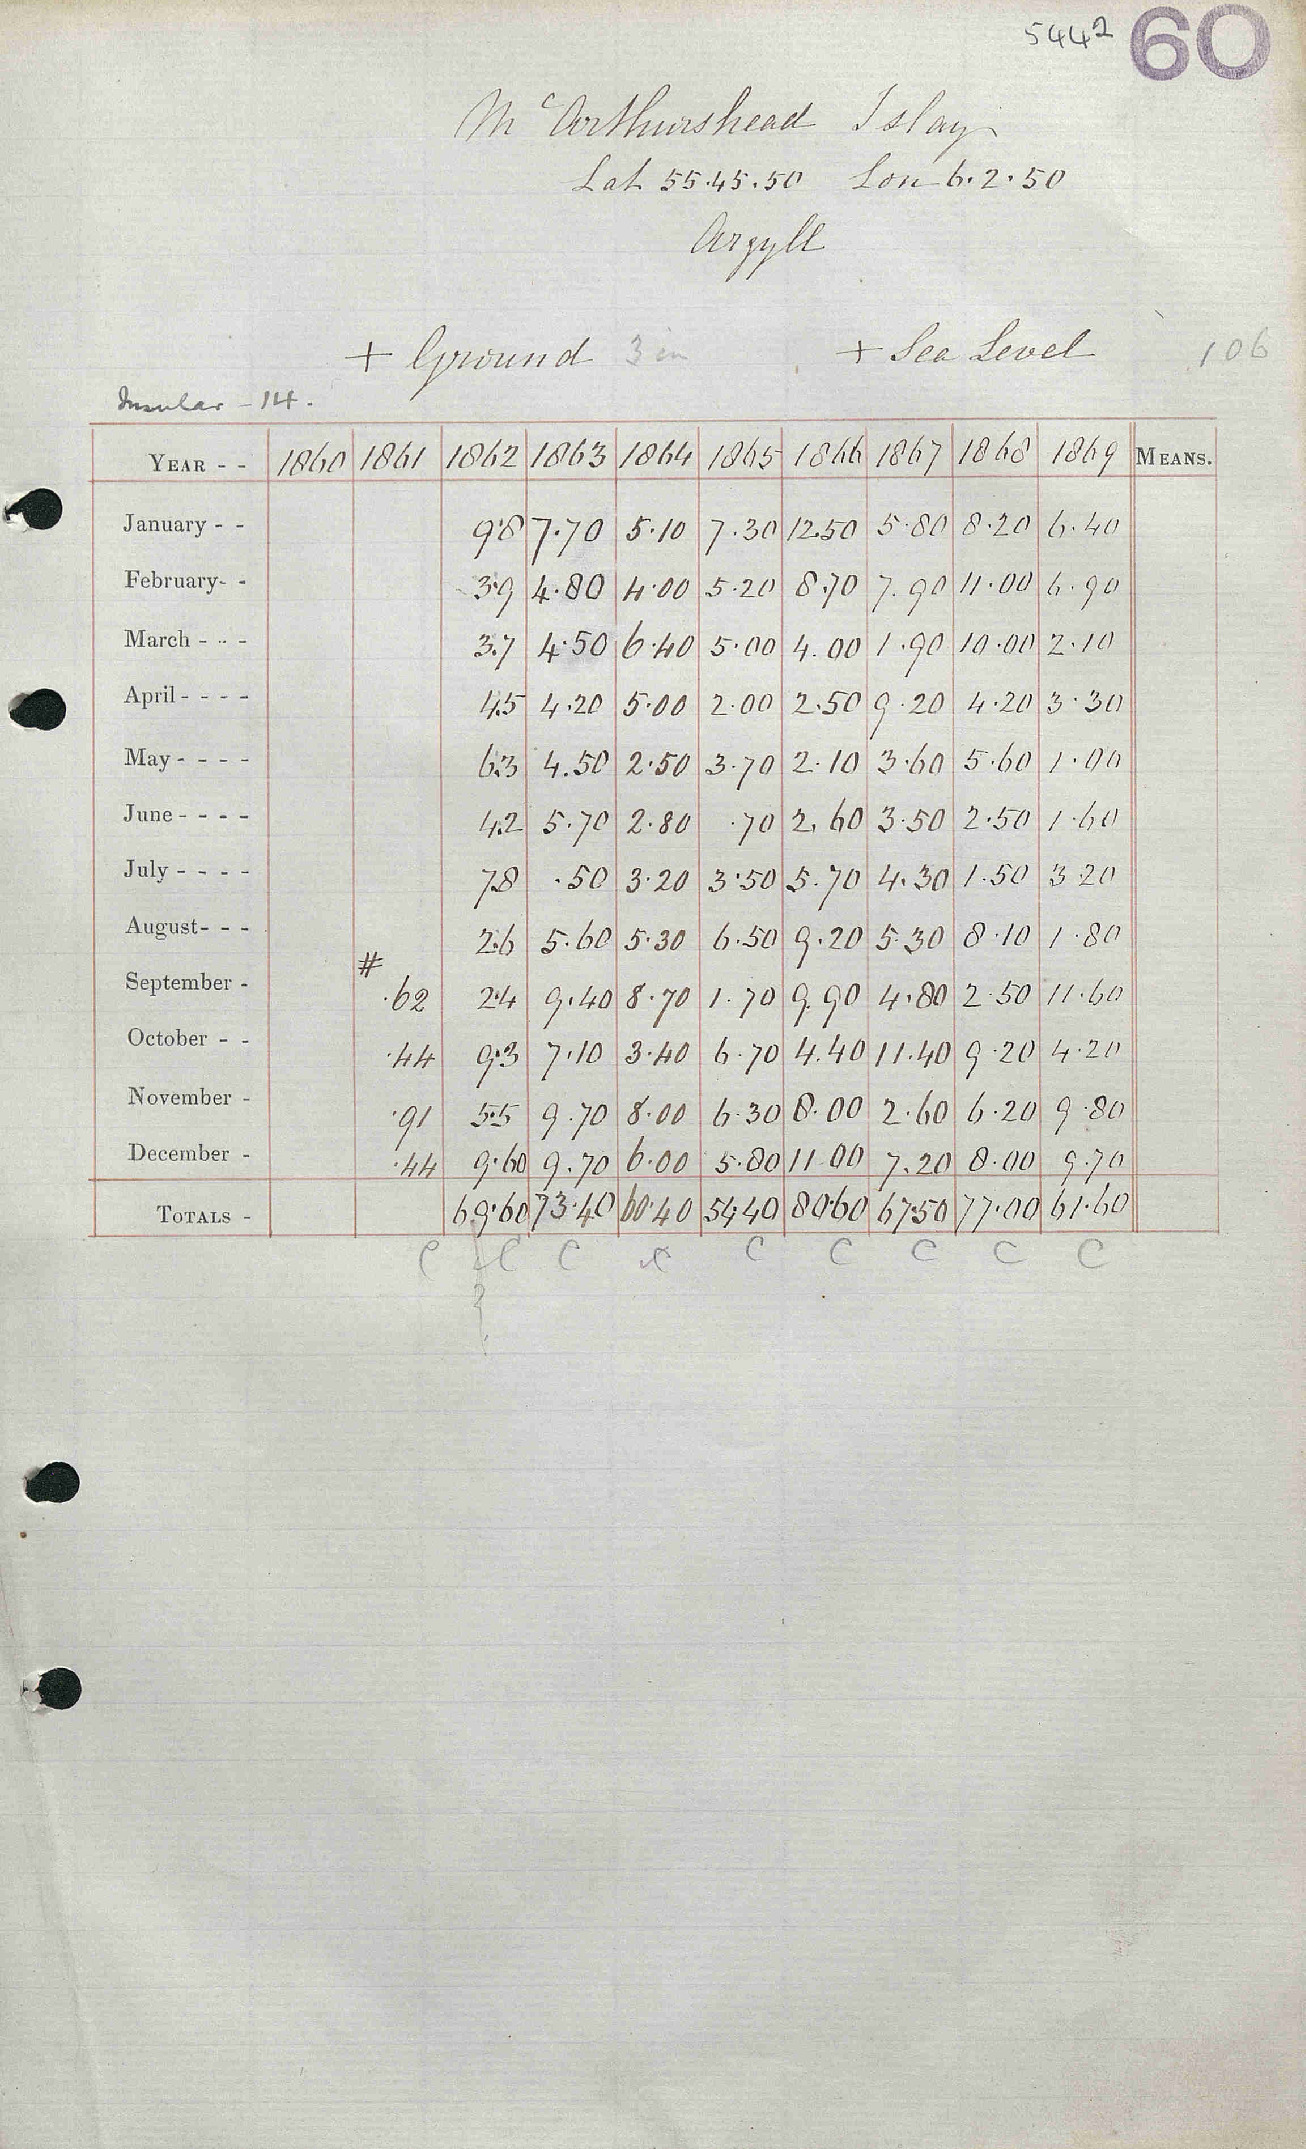 5442 60
McArthurshead Islay
Lat 55.45.50 Lon 6.2.50
Argyll
+ Ground 3 in + Sea Level 106
Insular - 14.
YEAR - - 1860 1861 1862 1863 1864 1865 1866 1867 1868 1869 MEANS.
January - - 9.8 7.70 5.10 7.30 12.50 5.80 8.20 6.40
February- - 3.9 4.80 4.00 5.20 8.70 7.90 11.00 6.90
March - - - 3.7 4.50 6.40 5.00 4.00 1.90 10.00 2.10
April - - - - 4.5 4.20 5.00 2.00 2.50 9.20 4.20 3.30
May - - - - 6.3 4.50 2.50 3.70 2.10 3.60 5.60 1.00
June - - - - 4.2 5.70 2.80 .70 2.60 3.50 2.50 1.60
July - - - - 7.8 .50 3.20 3.50 5.70 4.30 1.50 3.20
August- - - 2.6 5.60 5.30 6.50 9.20 5.30 8.10 1.80
#
September - .62 2.4 9.40 8.70 1.70 9.90 4.80 2.50 11.60
October - - .44 9.3 7.10 3.40 6.70 4.40 11.40 9.20 4.20
November - .91 5.5 9.70 8.00 6.30 8.00 2.60 6.20 9.80
December - .44 9.60 9.70 6.00 5.80 11.00 7.20 8.00 9.70
TOTALS - 69.60 73.40 60.40 54.40 80.60 67.50 77.00 61.60
C C C C C C C C C